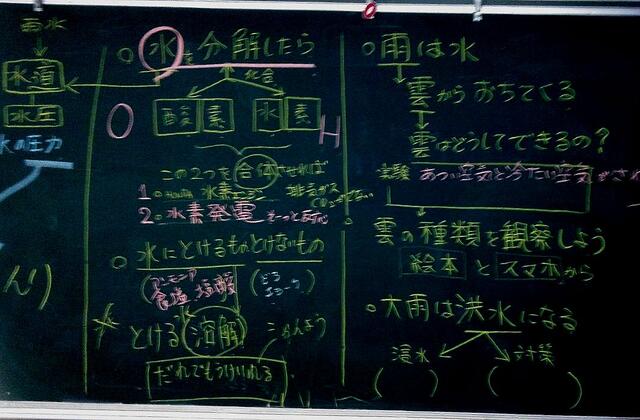 雨水
水道
水圧
水の圧力
○水を分解したら
化合
O 酸素 水素 H
この2つを合体させれば
1.
水素
2.水素発電
○水にとけるものとけないもの
食塩 塩酸
とける 溶解
だれでもうけいれる
○雨は水
雲からおちてくる
雲はどうしてできるの?
実験 あつい空気と冷たい空気が
雲の種類を観察しよう
絵本とスマホから
○大雨は洪水になる
浸水 対策
( ) ( )